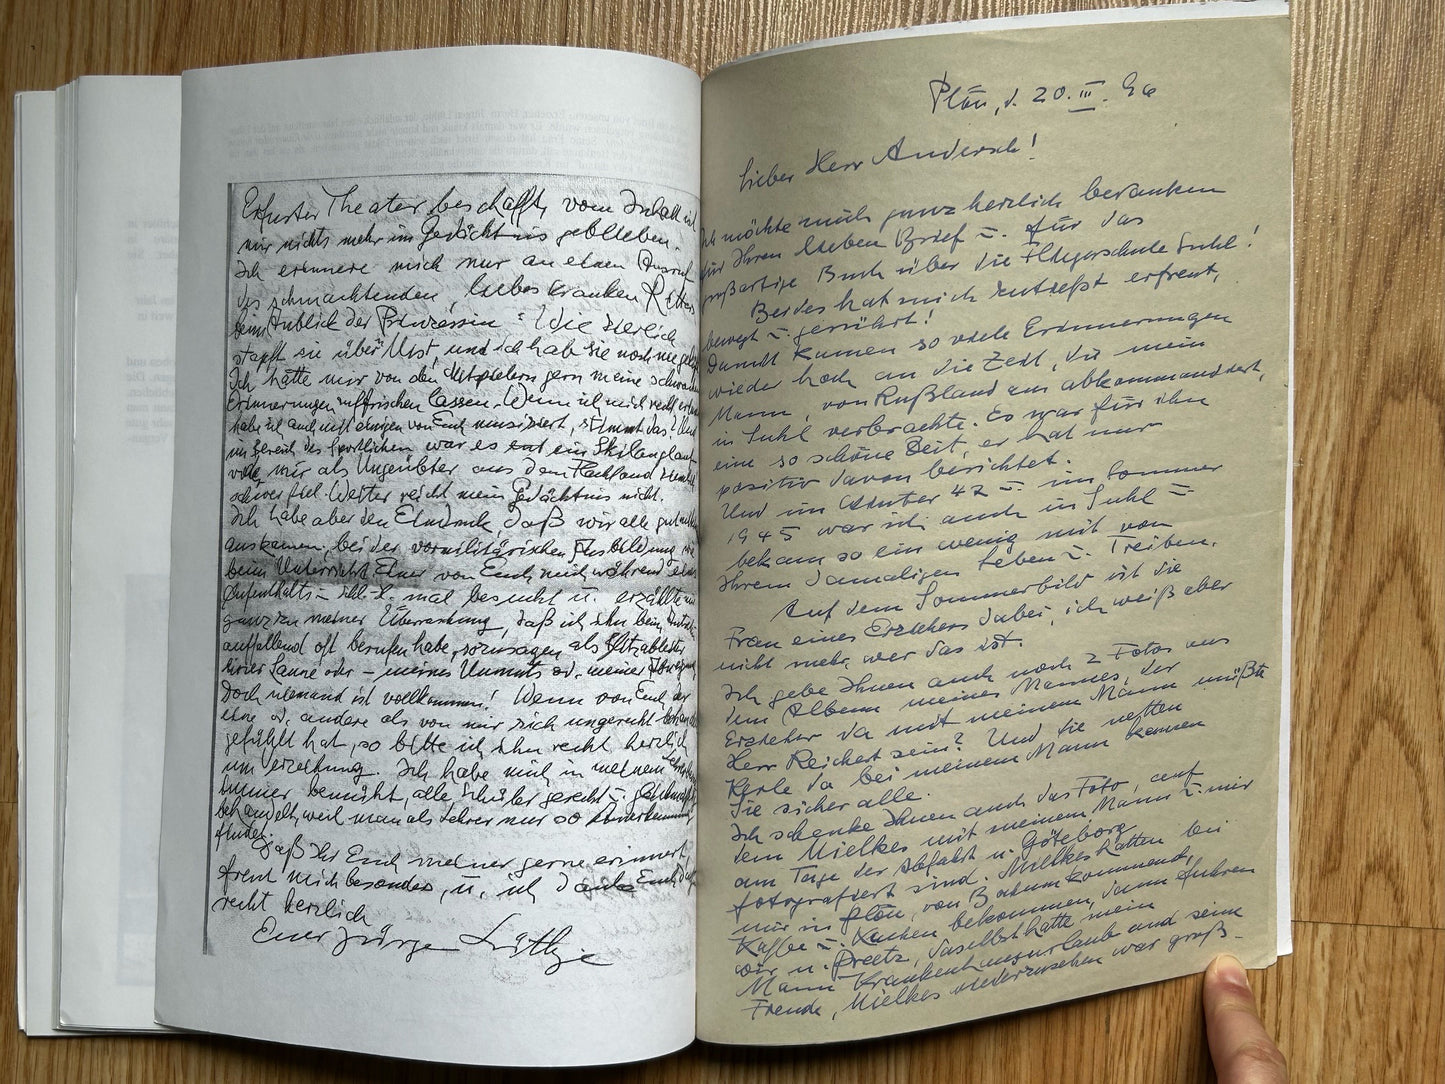 Erfurter Theater beschafft, vom Inhalt ist
mir nichts mehr im Gedächtnis geblieben.
Ich erinnere mich nur an einen Ausruf
des schmachtenden, liebeskranken Ritters
beim Anblick der Prinzessin: "Wie zierlich
stapft sie über Mist, und ich hab sie noch nie
Ich hätte mir von den Mitspielern gern meine
Erinnerungen auffrischen lassen. Wenn ich mich recht
habe ich auch mit einigen von Euch musiziert, stimmt das? Und
im Bereich des Sportlichen war es ein Skilanglauf
mir als Ungeübter aus dem Flachland
schwer fiel. Weiter reicht mein Gedächtnis nicht.
Ich habe aber den Eindruck, daß wir alle gut
auskamen, bei der vormilitärischen Ausbildung wie
beim Unterricht. Einer von Euch, mich während eines
mal besucht u. erzählte mir
ganz zu meiner Überraschung, daß ich ihn beim
auffallend oft berufen habe, sozusagen als Blitzableiter
Laune oder – meines Unmuts od. meiner
Doch niemand ist vollkommen! Wenn von Euch der
eine od. andere als von mir sich ungerecht
gefühlt hat, so bitte ich ihn recht herzlich
um Verzeihung. Ich habe mich in meinem
immer bemüht, alle Schüler gerecht u.
behandeln, weil man als Lehrer nur so Anerkennung
findet.
Daß Ihr Euch meiner gerne erinnert,
freut mich besonders, u. ich danke Euch
recht herzlich
Euer Jürgen Lüthje
Plön, d. 20. III. 96
Lieber Herr Andersch!
Ich möchte mich ganz herzlich bedanken
für Ihren lieben Brief u. für das
großartige Buch über die Fliegerschule Suhl!
Beides hat mich zutiefst erfreut,
bewegt u. gerührt!
Damit kamen so viele Erinnerungen
wieder hoch an die Zeit, die mein
Mann, von Rußland aus abkommandiert,
in Suhl verbrachte. Es war für ihn
eine so schöne Zeit, er hat nur
positiv davon berichtet.
Und im Oktober 42 u. im Sommer
1945 war ich auch in Suhl u.
bekam so ein wenig mit von
Ihrem damaligen Leben u. Treiben.
Auf dem Sommerbild ist die
Frau eines Erziehers dabei, ich weiß aber
nicht mehr, wer das ist.
Ich gebe Ihnen auch noch 2 Fotos aus
dem Album meines Mannes, der
Erzieher da mit meinem Mann müßte
Herr Reichert sein? Und die netten
Kerle da bei meinem Mann kennen
Sie sicher alle.
Ich schenke Ihnen auch das Foto, auf
dem Mielkes mit meinem Mann u. mir
am Tage der Abfahrt n. Göteborg
fotografiert sind. Mielkes hatten bei
mir in Plön, von Bochum kommend,
Kaffee u. Kuchen bekommen, dann fuhren
wir n. Preetz, daselbst hatte mein
Mann Krankenhausurlaub und seine
Freude, Mielkes wiederzusehen war groß.